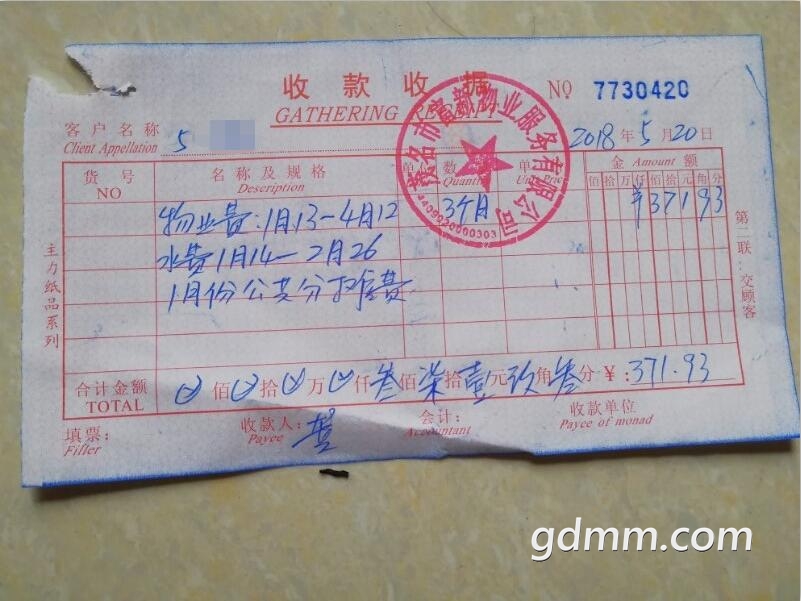 收款收据
GATHERING RECEIPT
NO 7730420
客户名称 5
Client Appellation
2018年5月20日
货号 NO
名称及规格 Description
单位
数量 Quantity
单价 Unit Price
金 Amount 额
佰拾万仟佰拾元角分
物业费:1月13-4月12 3个月 ¥37193
水费1月14-2月26
1月份公共分摊费
合计金额 TOTAL
佰 拾 万 仟叁佰柒拾壹元玖角叁分 ¥:371.93
填票: Filler
收款人: Payee
会计: Accountant
收款单位 Payee of monad
主力纸品系列
第二联:交顾客
茂名市富颖物业服务有限公司
4409020000303
gdmm.com